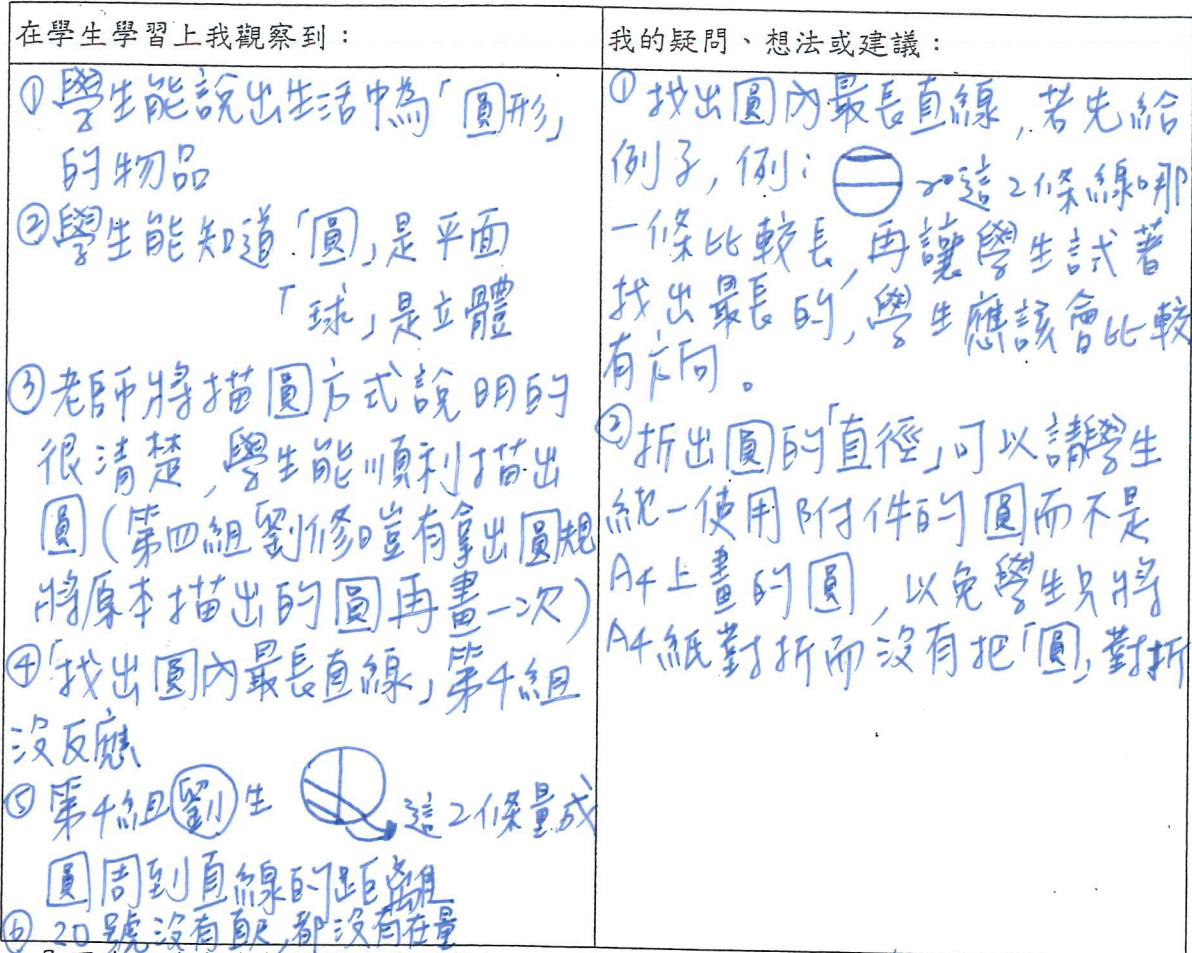 在學生學習上我觀察到：
①學生能說出生活中為「圓形」
的物品
②學生能知道「圓」是平面
「球」是立體
③老師將描圓方式說明的
很清楚，學生能順利描出
圓（第四組劉修愷有拿出圓規
將原本描出的圓再畫一次）
④「找出圓內最長直線」第4組
沒反應
⑤第4組劉生 這2條量成
圓周到直線的距離
⑥20號沒有直尺，都沒有在量
我的疑問、想法或建議：
①找出圓內最長直線，若先給
例子，例： 這2條線哪
一條比較長，再讓學生試著
找出最長的，學生應該會比較
有方向。
②折出圓的「直徑」可以請學生
統一使用附件的圓而不是
A4上畫的圓，以免學生只將
A4紙對折而沒有把「圓」對折